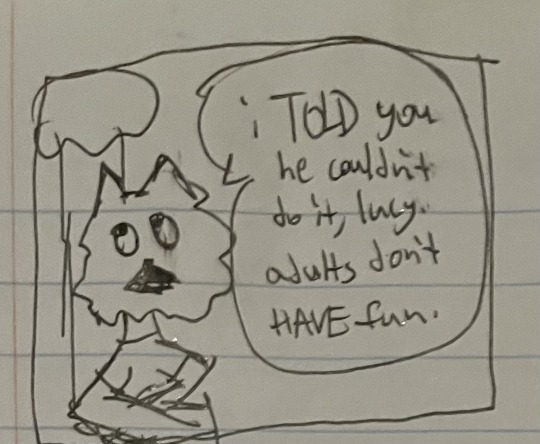 i TOLD you
he couldn't
do it, lucy.
adults don't
HAVE fun.